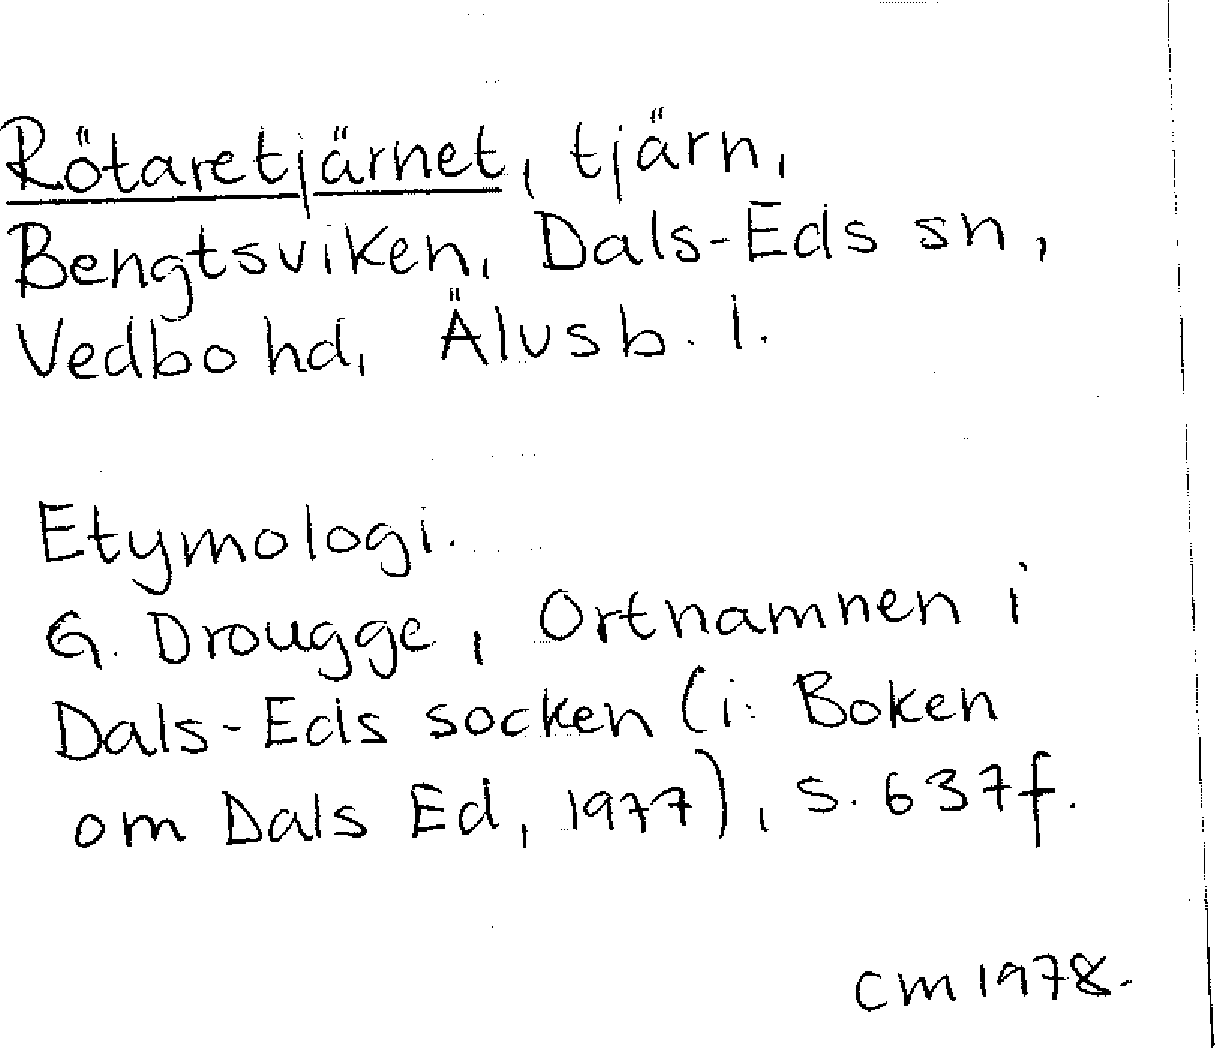 Rötaretjärnet, tjärn,
Bengtsviken, Dals-Eds sn,
Vedbo hd, Älvsb. l.
Etymologi.
G. Drougge, Ortnamnen i
Dals-Eds socken (i: Boken
om Dals Ed, 1977), s. 637f.
CM 1978.